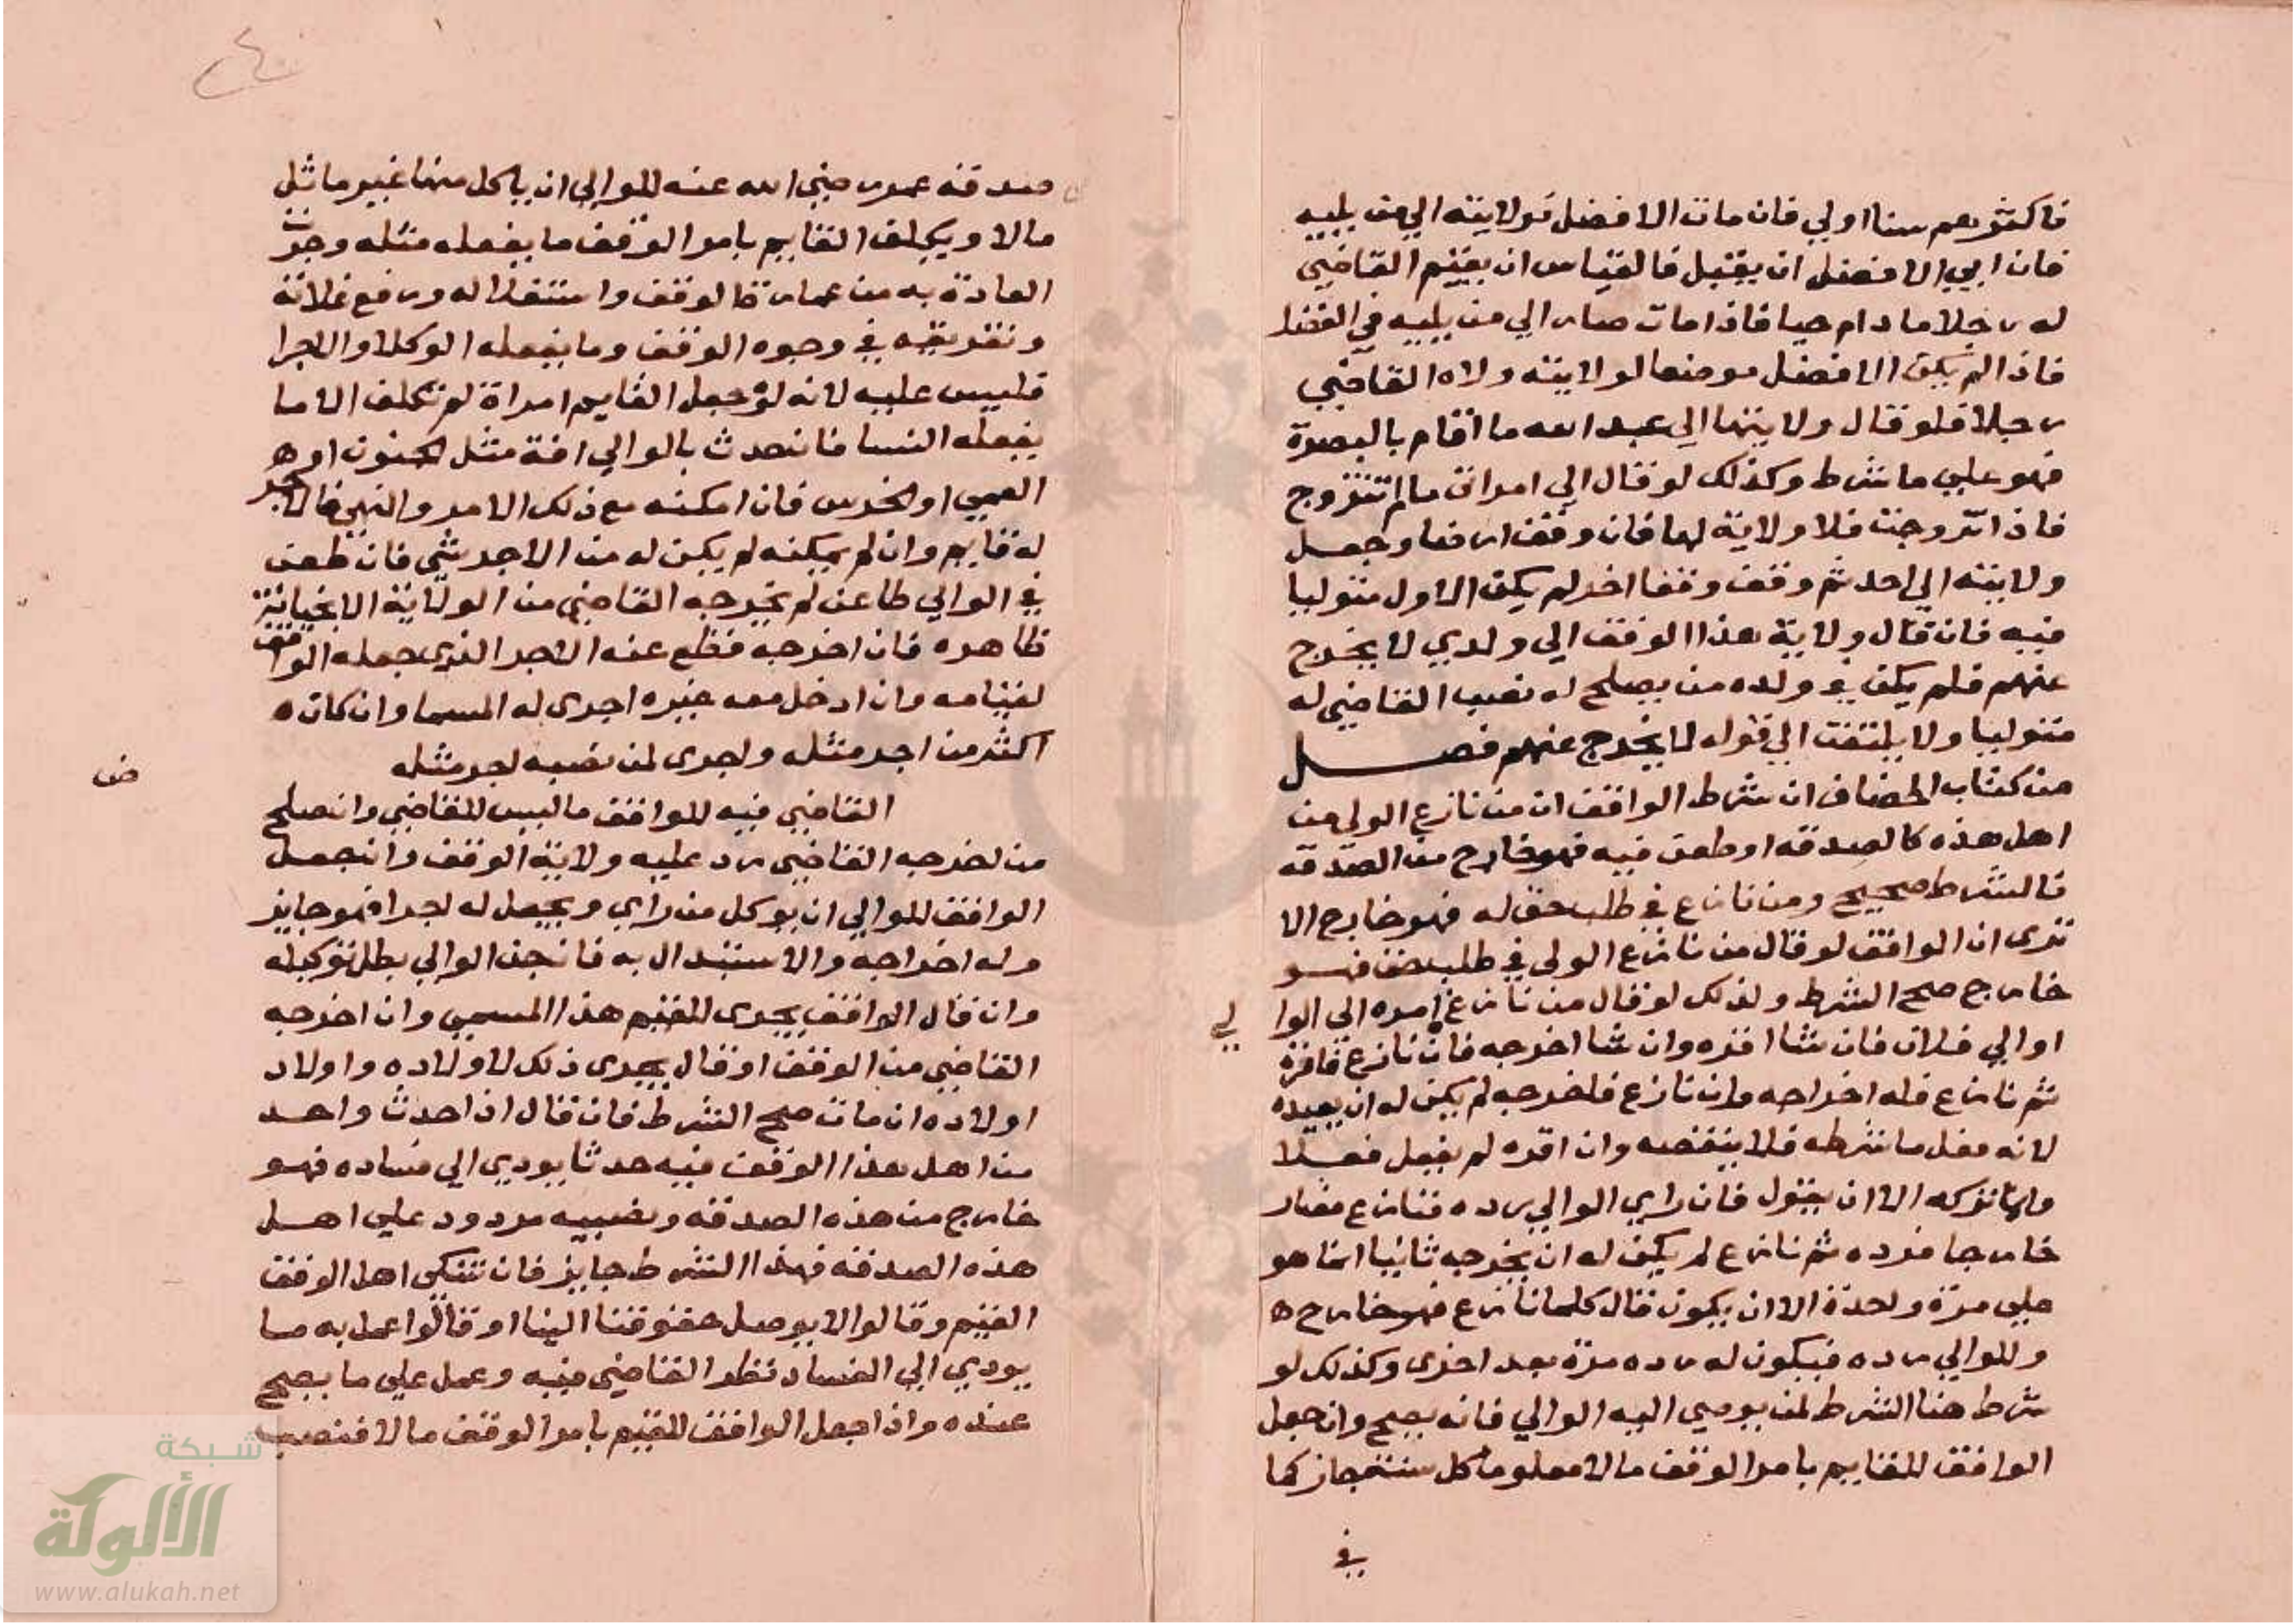 فاكثرهم سنا اولي فان مات الافضل فولايته الي من يليه
فان ابي الافضل ان يقبل فالقياس ان يقيم القاضي
له رجلا مادام حيا فاذا مات صار الي من يليه في الفضل
فاذا لم يكن الافضل موضعا لولايته ولاه القاضي
رجلا فلو قال ولايتها الي عبد الله ما اقام بالبصرة
فهو علي ما شرط وكذلك لو قال الي امراتي ما لم تتزوج
فاذا تزوجت فلا ولاية لها فان وقف ارضا وجعل
ولايته الي احد ثم وقف وقفا اخر لم يكن الاول متوليا
فيه فان قال ولاية هذا الوقف الي ولدي لا يخرج
عنهم فلم يكن في ولده من يصلح له نصب القاضي له
متوليا ولا يلتفت الي قوله لا يخرج عنهم فصل
من كتاب الخصاف ان شرط الواقف ان من نازع الولي من
اهل هذه كالصدقه او طعن فيه فهو خارج من الصدقه
فالشرط صحيح ومن نازع في طلب حق له فهو خارج الا
تري ان الواقف لو قال من نازع الولي في طلب حق فهو
خارج صح الشرط ولذلك لو قال من نازع امره الي الوا
لي
او الي فلان فان شا اقره وان شا اخرجه فان نازع فاقره
ثم نازع فله اخراجه وان نازع فاخرجه لم يكن له ان يعيده
لانه فعل ما شرطه فلا ينقضه وان اقره لم يفعل فعلا
وانما تركه الا ان يقول فان راي الوالي رده فنازع فصار
خارجا فرده ثم نازع لم يكن له ان يخرجه ثانيا انما هو
علي مرة واحدة الا ان يكون قال كلما نازع فهو خارج ه
وللوالي رده فيكون له رده مرة بعد اخري وكذلك لو
شرط هذا الشرط لمن يوصي اليه الوالي فانه يصح وان جعل
الواقف للقايم بامر الوقف مالا معلوما كل سنه جاز كما
في
٤٠
صدقه عمر رضي الله عنه للوالي ان ياكل منها غير متاثل
مالا ويكلف القايم بامر الوقف ما يفعله مثله وجرت
العادة به من عمارة الوقف واستغلاله ورفع غلاته
وتفريقه في وجوه الوقف وما يفعله الوكلا والاجرا
فليس عليه لانه لو جعل القايم امراة لم تكلف الا ما
يفعله النسا فان حدث بالوالي افة مثل الجنون او
العمي او الخرس فان امكنه مع ذلك الامر والنهي فالاجر
له قايم وان لم يمكنه لم يكن له من الاجر شي فان طعن
في الوالي طاعن لم يخرجه القاضي من الولاية الا بخيانة
ظاهره فان اخرجه قطع عنه الاجر الذي جعله الواقف
لقيامه وان ادخل معه غيره اجري له المسما وان كان ه
اكثر من اجر مثله واجري لمن نصبه اجر مثله
ض
القاضي فيه للواقف ما ليس للقاضي وان صلح
من اخرجه القاضي رد عليه ولاية الوقف وان جعل
الواقف للوالي ان يوكل من راي ويجعل له اجرا فهو جايز
وله اخراجه والاستبدال به فان جن الوالي بطل توكيله
وان قال الواقف يجري للقيم هذا المسمي وان اخرجه
القاضي من الوقف او قال يجري ذلك لاولاده واولاد
اولاده ان مات صح الشرط فان قال اذا احدث واحد
من اهل هذا الوقف فيه حدثا يودي الي فساده فهو
خارج من هذه الصدقه ونصيبه مردود علي اهل
هذه الصدقه فهذا الشرط جايز فان تشكي اهل الوقف
القيم وقالوا لا يوصل حقوقنا الينا او قالوا عمل به ما
يودي الي الفساد نظر القاضي فيه وعمل علي ما يصح
عنده واذا جعل الواقف للقيم بامر الوقف مالا فنصب
شبكة
الألوكة
www.alukah.net